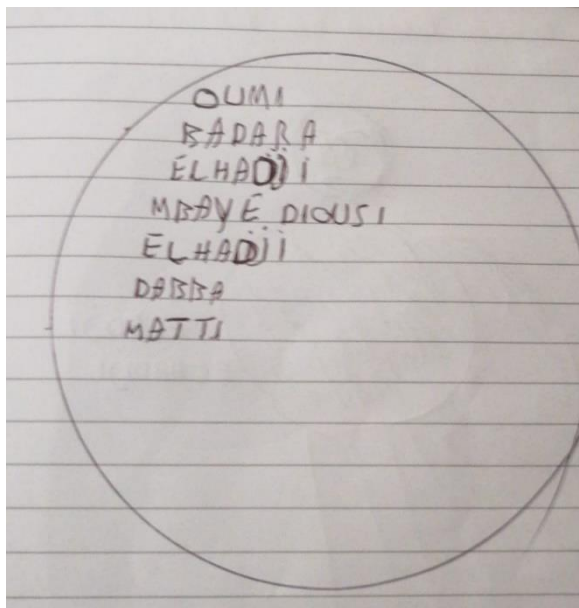 OUMI
BADARA
ELHADJi
MBAYE DIOUSI
ELHADJi
DABBA
MATTI